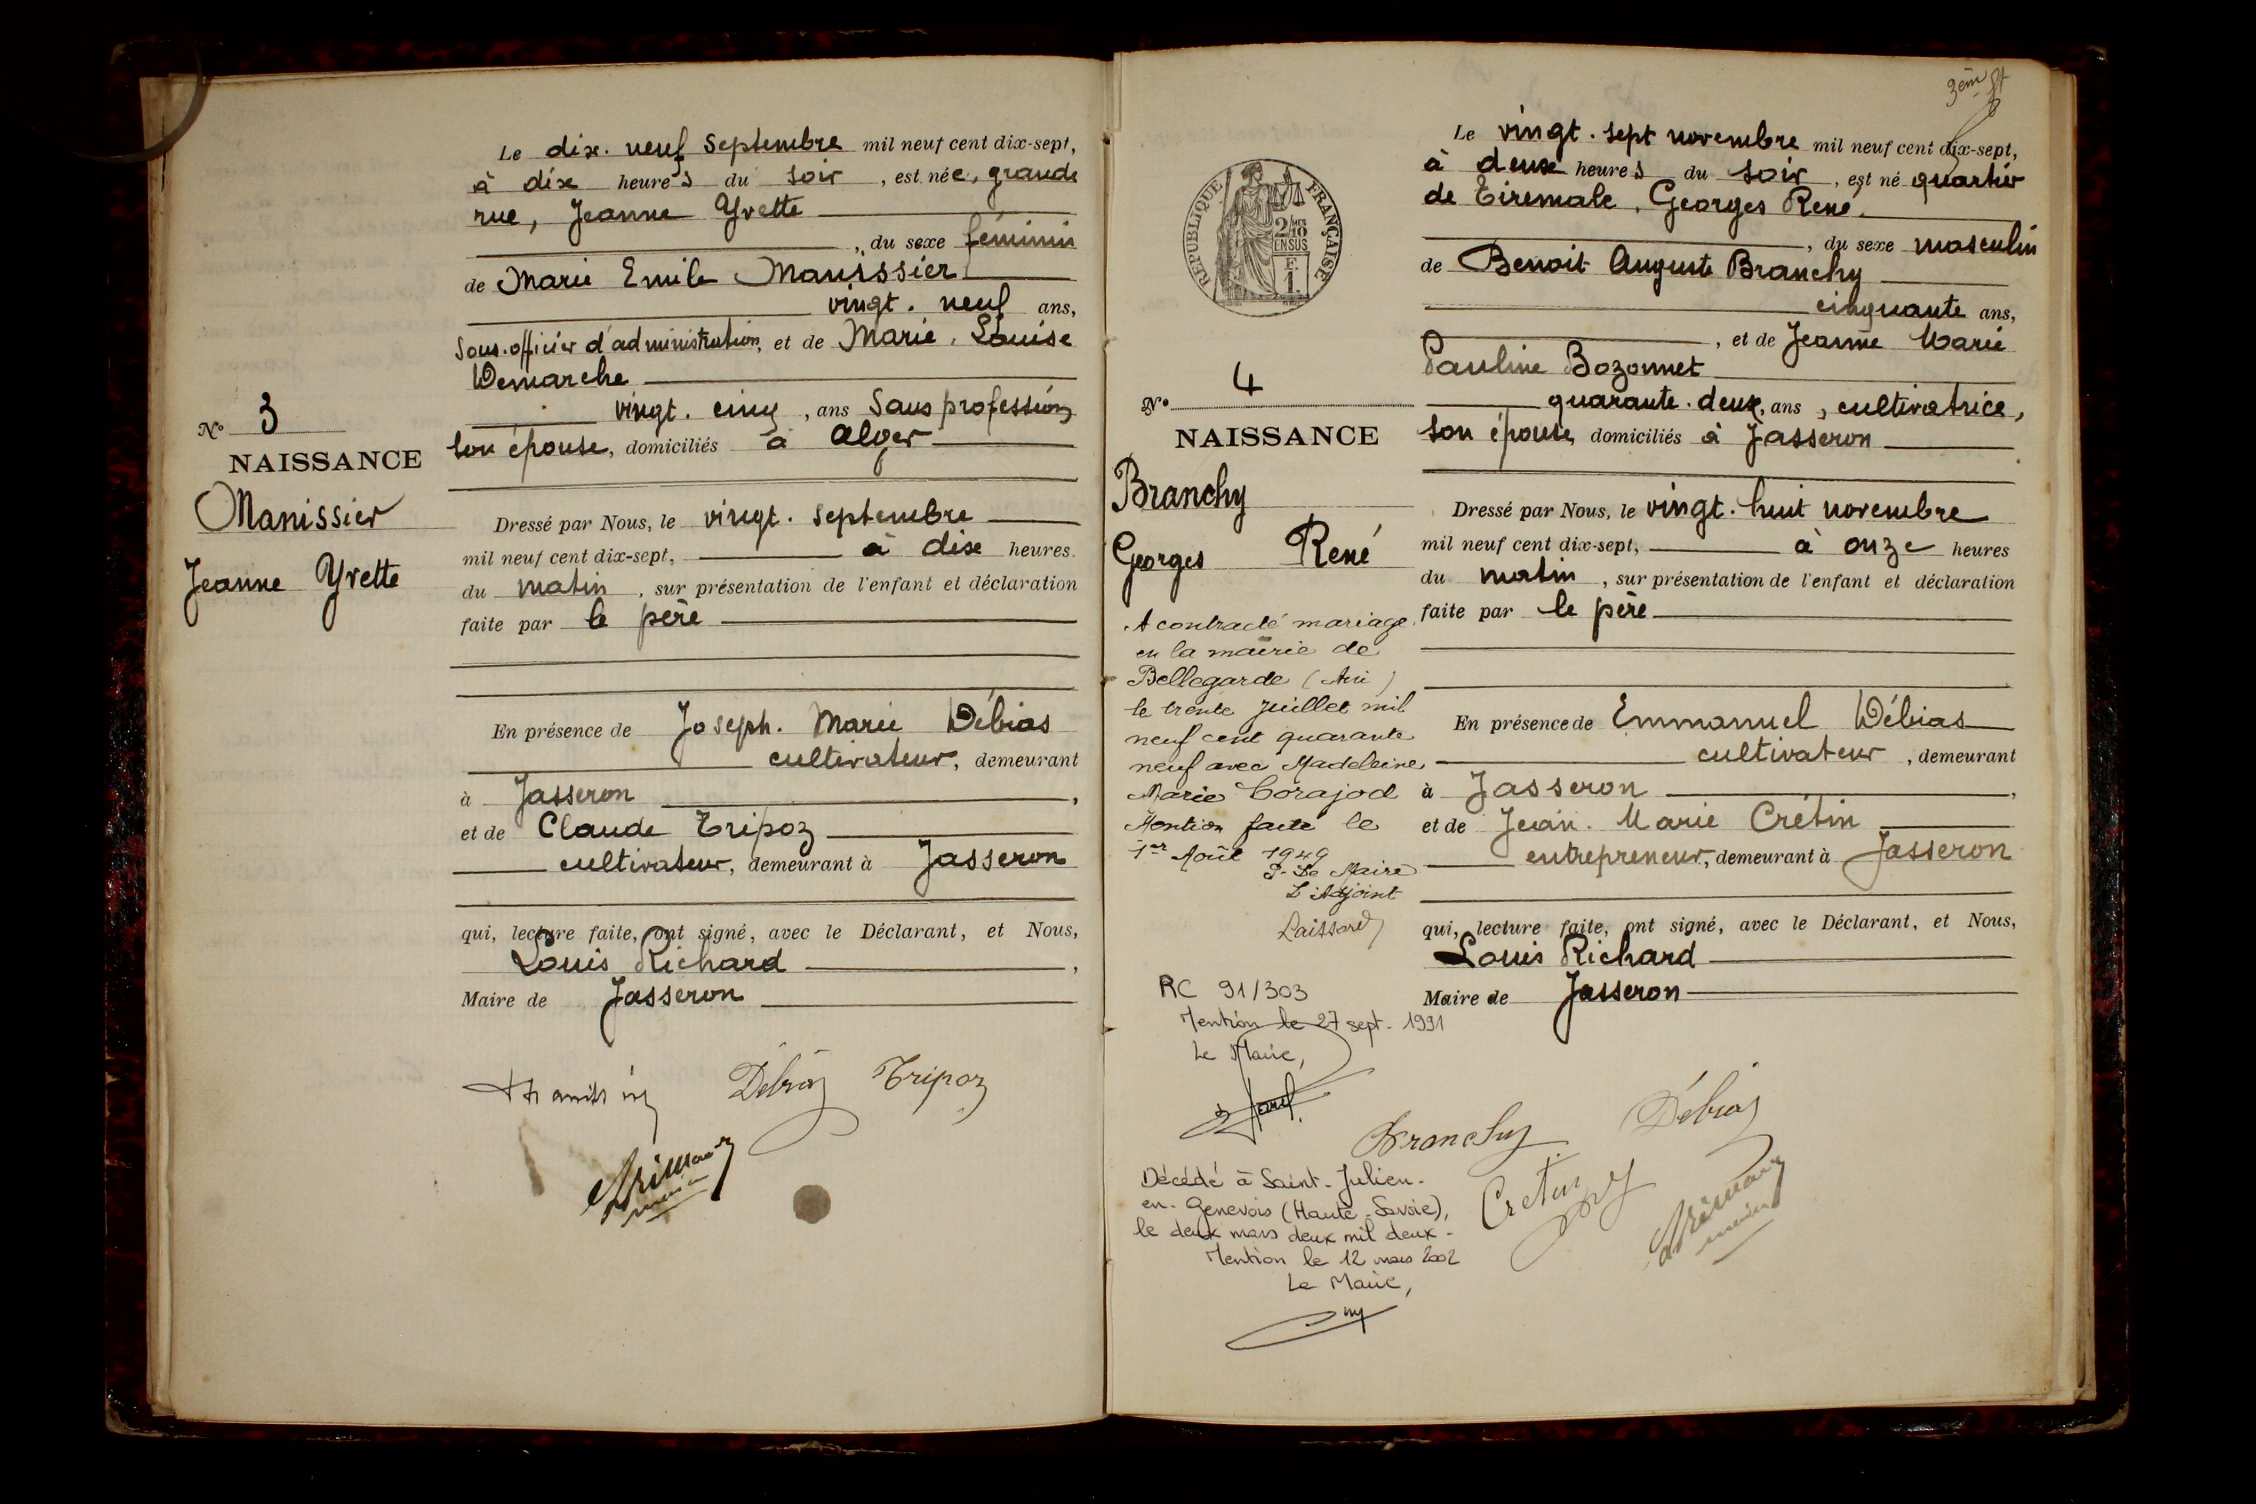 Le dix. neuf Septembre mil neuf cent dix-sept,
à dix heures du soir, est née, grande
rue, Jeanne Yvette
, du sexe féminin
de Marie Emile Manissier
vingt. neuf ans,
Sous. officier d'administration, et de Marie. Louise
Demarche
vingt. cinq, ans Sans profession
son épouse, domiciliés à Alger
N° 3
NAISSANCE
Manissier
Jeanne Yvette
Dressé par Nous, le vingt. septembre
mil neuf cent dix-sept, à dix heures.
du matin, sur présentation de l'enfant et déclaration
faite par le père
En présence de Joseph. Marie Débias
cultivateur, demeurant
à Jasseron,
et de Claude Tripoz
cultivateur, demeurant à Jasseron
qui, lecture faite, ont signé, avec le Déclarant, et Nous,
Louis Richard,
Maire de Jasseron
Débias Tripoz
3ème ft
RÉPUBLIQUE FRANÇAISE
EN SUS
Le vingt. sept novembre mil neuf cent dix-sept,
à deux heures du soir, est né quartier
de Tiremale, Georges René.
, du sexe masculin
de Benoit Auguste Branchy
cinquante ans,
, et de Jeanne Marie
Pauline Bozonnet
quarante. deux, ans, cultivatrice,
son épouse, domiciliés à Jasseron
N° 4
NAISSANCE
Branchy
Georges René
Dressé par Nous, le vingt. huit novembre
mil neuf cent dix-sept, à onze heures
du matin, sur présentation de l'enfant et déclaration
faite par le père
En présence de Emmanuel Débias
cultivateur, demeurant
à Jasseron,
et de Jean. Marie Crétin
entrepreneur, demeurant à Jasseron
qui, lecture faite, ont signé, avec le Déclarant, et Nous,
Louis Richard
Maire de Jasseron
A contracté mariage
en la mairie de
Bellegarde (Ain)
le trente Juillet mil
neuf cent quarante
neuf avec Madeleine
Marie Corajod
Mention faite le
1er Août 1949
P. Le Maire
L'Adjoint
RC 91/303
Mention le 27 sept. 1991
Le Maire,
Branchy Débias
Cretin
Décédé à Saint-Julien-
en-Genevois (Haute-Savoie),
le deux mars deux mil deux-
Mention le 12 mars 2002
Le Maire,